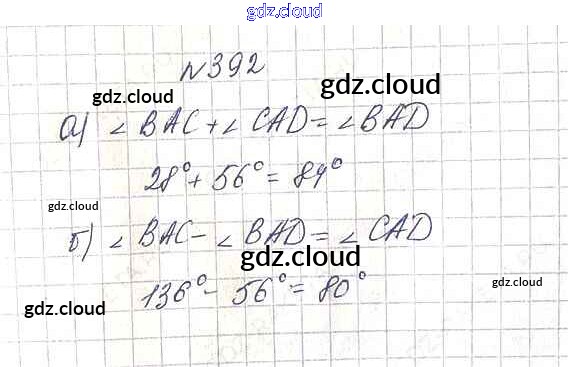 gdz.cloud
№392
gdz.cloud
gdz.cloud
а) ∠BAC+∠CAD=∠BAD
28°+56°=84°
gdz.cloud
б) ∠BAC-∠BAD=∠CAD
gdz.cloud
gdz.cloud
136°-56°=80°
gdz.cloud
gdz.cloud